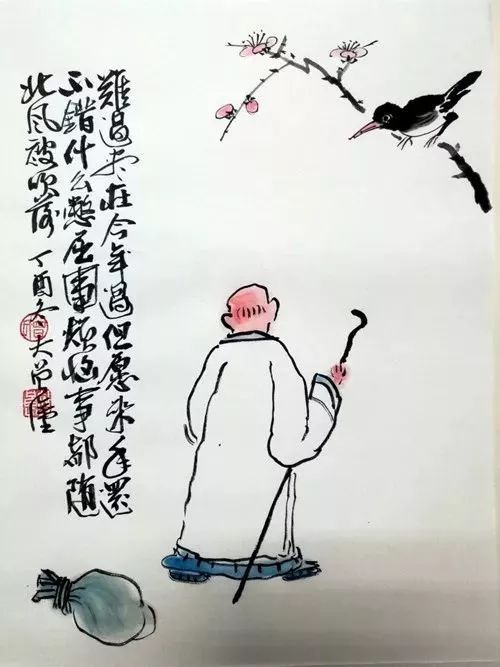 難過尽在今年過但愿来年還
不錯什么憋屈烦惱事都隨
北風被吹落 丁酉冬 大